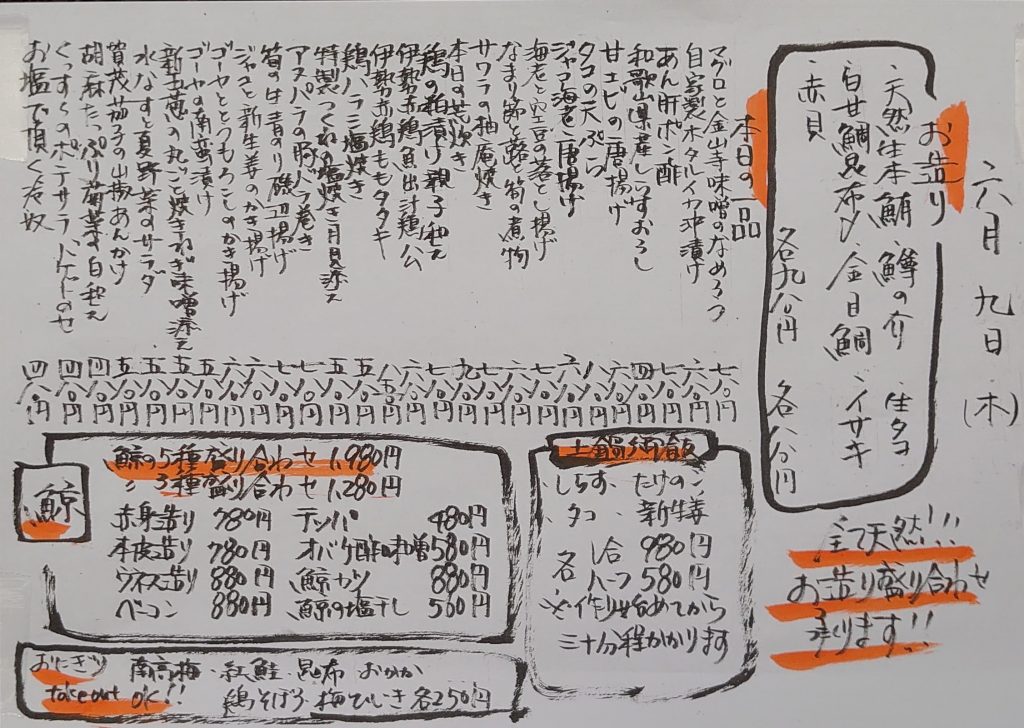 六月九日(木)
お造り
・天然生本鮪・鱒の介・生タコ
・白甘鯛昆布〆・金目鯛・イサキ
・赤貝 各九八〇円 各八八〇円
全て天然!!!
お造り盛り合わせ
承ります!!
本日の一品
マグロと金山寺味噌のなめろう 七八〇円
自家製ホタルイカ沖漬け 六八〇円
あん肝ポン酢 七八〇円
和歌山県産しいずおろし 四八〇円
甘エビの唐揚げ 六八〇円
タコの天ぷら 八八〇円
ジャコ海老唐揚げ
海老と空豆の落とし揚げ
なまり節と蕗と筍の煮物
サワラの柚庵焼き
本日の荒炊き
鶏の粕漬け親子和え
伊勢赤鶏魚出汁鶏ハム
伊勢赤鶏ももタタキ
鶏ハラミ塩焼き
特製つくねの塩焼き月見添え
アスパラの豚バラ巻き
筍の生青のり磯辺揚げ
ジャコと新生姜のかき揚げ
ゴーヤととうもろこしのかき揚げ
ゴーヤの南蛮漬け
新玉葱の丸ごと焼きねぎ味噌添え
水なすと夏野菜のサラダ
賀茂茄子の山椒あんかけ
胡麻たっぷり菊菜の白和え
くっすくらのポテサラバゲットのせ
お塩で頂く冷奴 四八〇円
土鍋御飯
・しらす・たけのこ
・タコ・新生姜
各 一合 980円
ハーフ 580円
※作り始めてから
三十分程かかります
鯨
鯨の5種盛り合わせ 1,980円
〃 3種盛り合わせ 1,280円
赤身造り 780円 テッパ 480円
本皮造り 780円 オバケ酢味噌 580円
ウネス造り 880円 鯨カツ 880円
ベーコン 880円 鯨の塩干し 580円
おにぎり 南高梅・紅鮭・昆布・おかか
take out OK!! 鶏そぼろ・梅ひじき 各250円